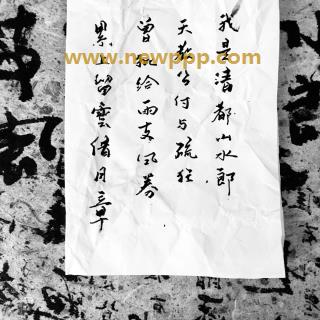 www.newppp.com
我是清都山水郎
天教分付与疏狂
曾批给雨支风券
累上留雲借月章